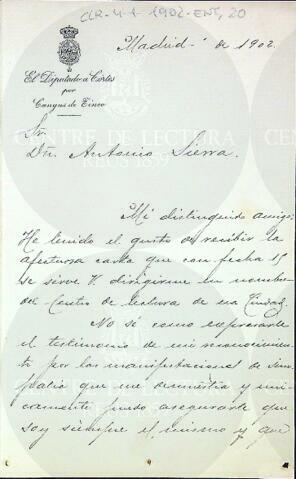 CLR-4-1-1902-ENT, 20
Madrid de 1902.
El Diputado a Cortes
por
Cangas de Tineo
Sr
Dn. Antonio Sierra.
Mi distinguido amigo:
He tenido el gusto de recibir la
afectuosa carta que con fecha 15
se sirve V. dirigirme en nombre
del Centro de Lectura de esa Ciudad.
No sé como expresarle
el testimonio de mi reconocimien-
to por las manifestaciones de sim-
patía que me demuestra y uni-
camente puedo asegurarle que
soy siempre el mismo y que
CENTRE DE LECTURA
REUS 1859